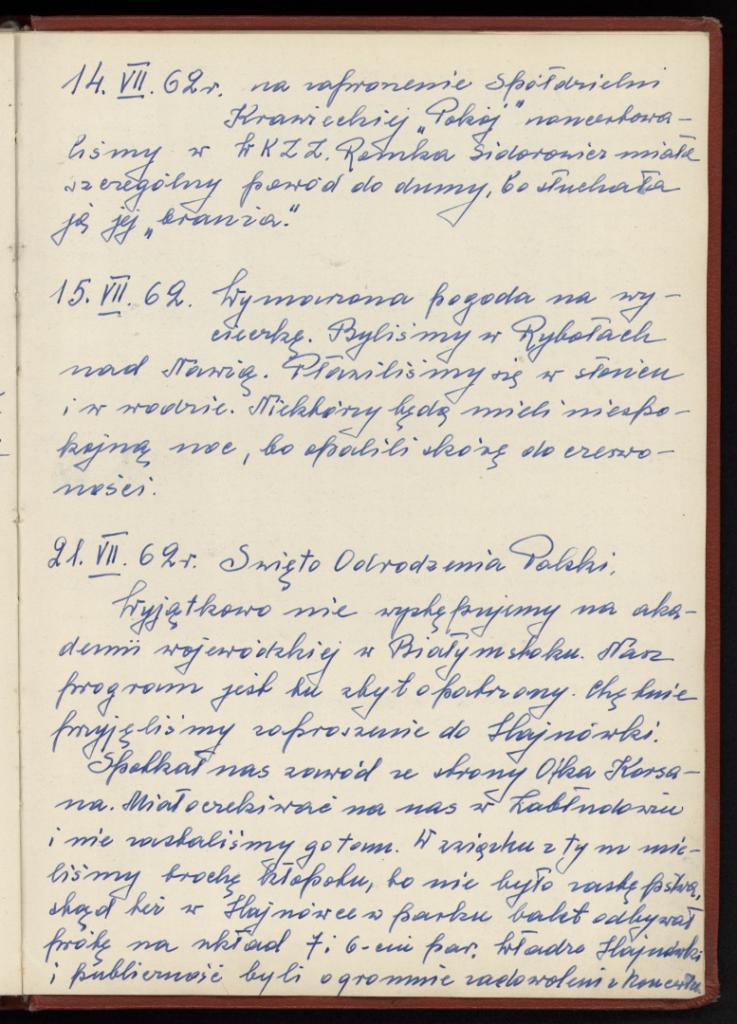 14. VII. 62 r. na zaproszenie Spółdzielni
Krawieckiej „Pokój" koncertowa-
liśmy w WKZZ. Romka Sidorowicz miała
szczególny powód do dumy, bo słuchała
ją jej „branża."
15. VII. 62. Wymarzona pogoda na wy-
cieczkę. Byliśmy w Rybołach
nad Narwią. Prażyliśmy się w słońcu
i w wodzie. Niektórzy będą mieli niespo-
kojną noc, bo opalili skórę do czerwo-
ności.
21. VII. 62 r. Święto Odrodzenia Polski.
Wyjątkowo nie występujemy na aka-
demii wojewódzkiej w Białymstoku. Nasz
program jest tu zbyt opatrzony. Chętnie
przyjęliśmy zaproszenie do Hajnówki.
Spotkał nas zawód ze strony Olka Korsa-
na. Miał oczekiwać na nas w Zabłudowiu
i nie zastaliśmy go tam. W związku z tym mie-
liśmy trochę kłopotu, bo nie było zastępstwa,
stąd też w Hajnówce w parku balet odbywał
próbę na układ 7 i 6-ciu par. Władze Hajnówki
i publiczność byli ogromnie zadowoleni z koncertu.